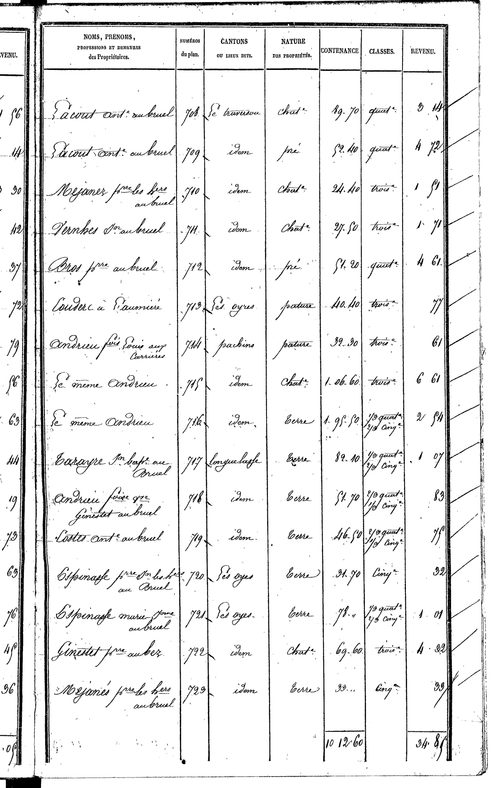 VENU.
NOMS, PRENOMS,
PROFESSIONS ET DEMEURES
des Propriétaires.
NUMÉROS
du plan.
CANTONS
OU LIEUX DITS.
NATURE
DES PROPRIÉTÉS.
CONTENANCE
CLASSES.
REVENU.
56 Lacout antne au bruel 708 Le traversou chatr 89.70 quatr 3 14
14 Lacout antne au bruel 709 idem pré 52.40 quatr 4 72
30 Mejanez pierre les hers 710 idem chatr 24.40 trois 1 51
au bruel
42 Vernhes au bruel 711 idem chatr 27.50 trois 1 71
37 Bros pierre au bruel 712 idem pré 51.20 quatr 4 61
72 Couderc à 713 Les oyres pature 40.40 trois 77
79 andrieu fois Louis aux 714 pature 32.30 trois 61
Carrières
56 Le même andrieu 715 idem chatr 1.06.60 trois 6 61
63 Le même andrieu 716 idem terre 1.95.50 1/3 quatr 2 54
2/3 cinq
44 Tarayre Jn bapt au 717 Longuelasse terre 82.10 1/3 quatr 1 07
Bruel 2/3 cinq
19 andrieu 718 idem terre 51.70 1/2 quatr 83
Ginestet au bruel 1/2 cinq
73 Costes antne au bruel 719 idem terre 46.50 1/2 quatr 75
1/2 cinq
63 Espinasse pierre Jn les hers 720 Les oyes terre 31.70 cinq 32
au Bruel
76 Espinasse marie 721 Les oyes terre 78 1/3 quatr 1 01
au bruel 2/3 cinq
45 Ginestet pierre au bez 722 idem chatr 69.60 trois 4 32
36 Mejanés pierre les hers 723 idem terre 33 cinq 33
au bruel
10 12.60 34.85